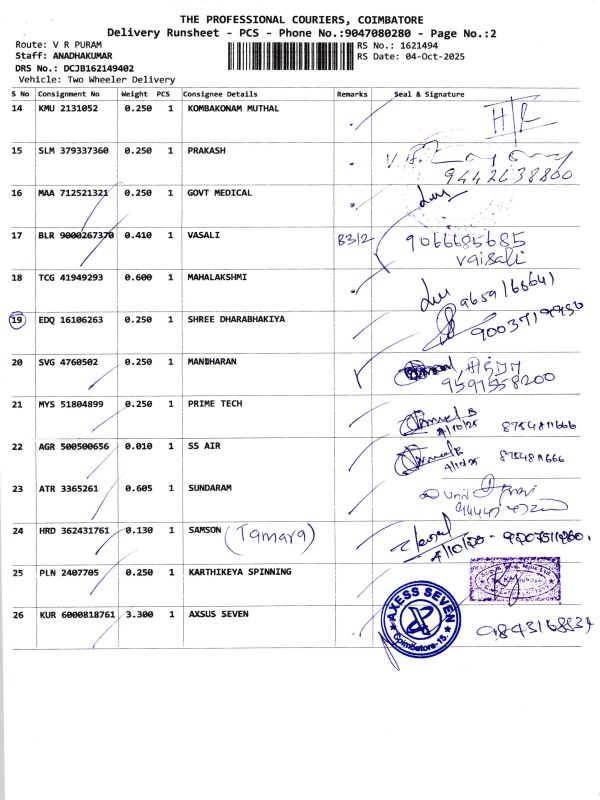 THE PROFESSIONAL COURIERS, COIMBATORE
Delivery Runsheet - PCS - Phone No.:9047080280 - Page No.:2
Route: V R PURAM
RS No.: 1621494
Staff: ANADHAKUMAR
RS Date: 04-Oct-2025
DRS No.: DCJB162149402
Vehicle: Two Wheeler Delivery
S No Consignment No Weight PCS Consignee Details Remarks Seal & Signature
14 KMU 2131052 0.250 1 KOMBAKONAM MUTHAL
15 SLM 379337360 0.250 1 PRAKASH
9442638800
16 MAA 712521321 0.250 1 GOVT MEDICAL
17 BLR 9000267370 0.410 1 VASALI B312 9066685685
vaisali
18 TCG 41949293 0.600 1 MAHALAKSHMI
19 EDQ 16106263 0.250 1 SHREE DHARABHAKIYA
20 SVG 4760502 0.250 1 MANIDHARAN
9591558200
21 MYS 51804899 0.250 1 PRIME TECH
4/10/25 8754811666
22 AGR 500500656 0.010 1 SS AIR
4/10/25 8754811666
23 ATR 3365261 0.605 1 SUNDARAM
24 HRD 362431761 0.130 1 SAMSON (Tamara)
25 PLN 2407705 0.250 1 KARTHIKEYA SPINNING
26 KUR 6000818761 3.300 1 AXSUS SEVEN
AXESS SEVEN
Coimbatore-15.